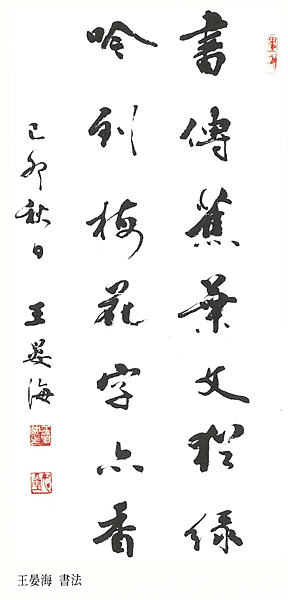 書傳蕉葉文猶綠
吟到梅花字亦香
己卯秋日 王晏海
王晏海 書法